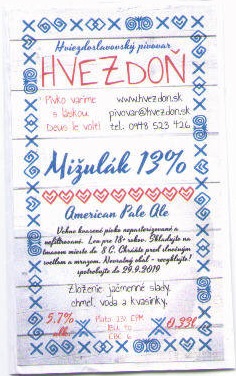 Hviezdoslavovský pivovar
HVEZDOŇ
Pivko varíme
s láskou
Devio le volei!
www.hvezdon.sk
pivovar@hvezdon.sk
tel: 0948 523 426
Mižulák 13%
American Pale Ale
Vrchne kvasené pivko nepasterizované a
nefiltrované. Len pre 18+ rokov. Skladujte na
tmavom mieste do 8 C. Chráňte pred slnečným
svetlom a mrazom. Nevratný obal - recyklujte!
spotrebujte do 29.9.2019
Zloženie: jačmenné slady,
chmel, voda a kvasinky.
5.7%
alk.
Plato: 13% EPM
IBU:
EBC:
0.33l